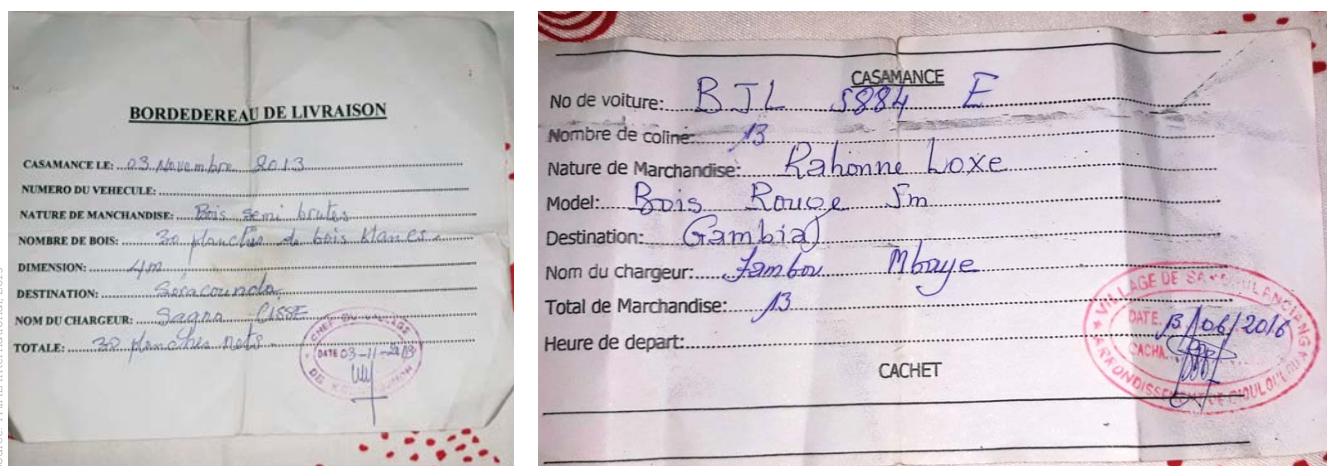 BORDEDEREAU DE LIVRAISON
CASAMANCE LE: 03 Novembre 2013
NUMERO DU VEHECULE:
NATURE DE MANCHANDISE: Bois semi brutes
NOMBRE DE BOIS: 30 planches de bois blancs
DIMENSION: 4m
DESTINATION: Séracounda
NOM DU CHARGEUR: Sagna CISSE
TOTALE: 30 planches nets
CHEF DU VILLAGE
DATE 03-11-2013
CASAMANCE
No de voiture: BJL 5884 E
Nombre de coline: 13
Nature de Marchandise: Rahonne Loxe
Model: Bois Rouge 5m
Destination: Gambia
Nom du chargeur: Fambou Mbaye
Total de Marchandise: 13
Heure de depart:
CACHET
VILLAGE DE
DATE 13/06/2016
CACHA
ARRONDISSEMENT DE DIOULOULOU